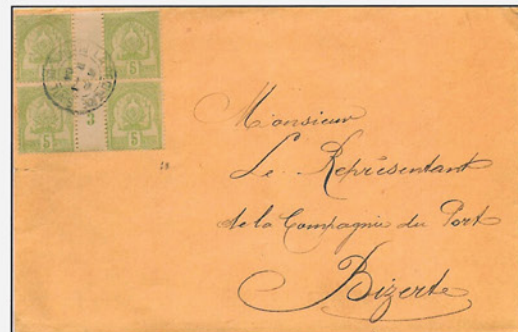 5 5
3
5 5
Monsieur
Le Représentant
de la Compagnie du Port
Bizerte